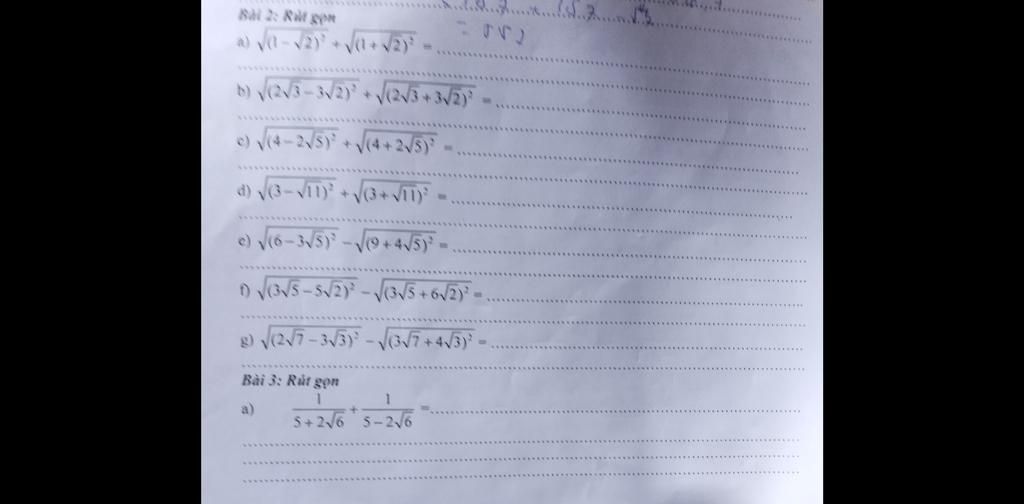 Bài 2: Rút gọn
a) √(1 − √2)² + √(1 + √2)² = ....................
b) √(2√3 − 3√2)² + √(2√3 + 3√2)² = ....................
c) √(4 − 2√5)² + √(4 + 2√5)² = ....................
d) √(3 − √11)² + √(3 + √11)² = ....................
e) √(6 − 3√5)² − √(9 + 4√5)² = ....................
f) √(3√5 − 5√2)² − √(3√5 + 6√2)² = ....................
g) √(2√7 − 3√3)² − √(3√7 + 4√3)² = ....................
Bài 3: Rút gọn
a) 1/(5 + 2√6) + 1/(5 − 2√6) = ....................